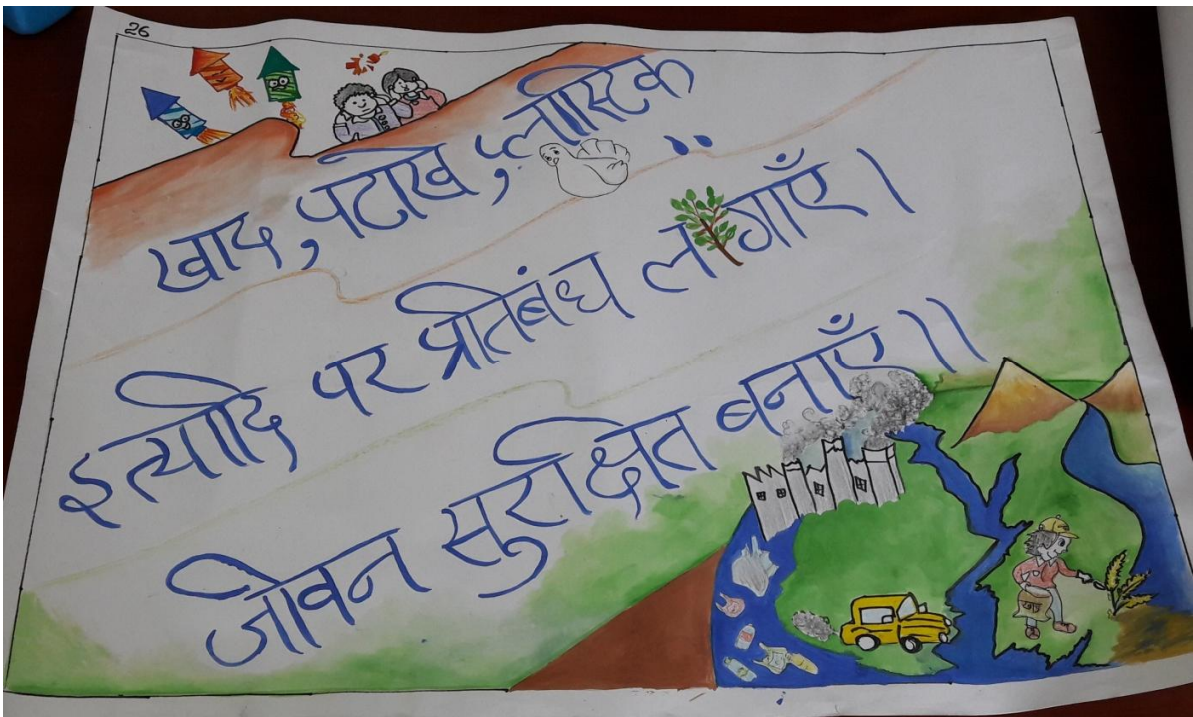 26
खाद, पटाखे, प्लास्टिक
इत्यादि पर प्रतिबंध लगाएँ।
जीवन सुरक्षित बनाएँ॥
खाद